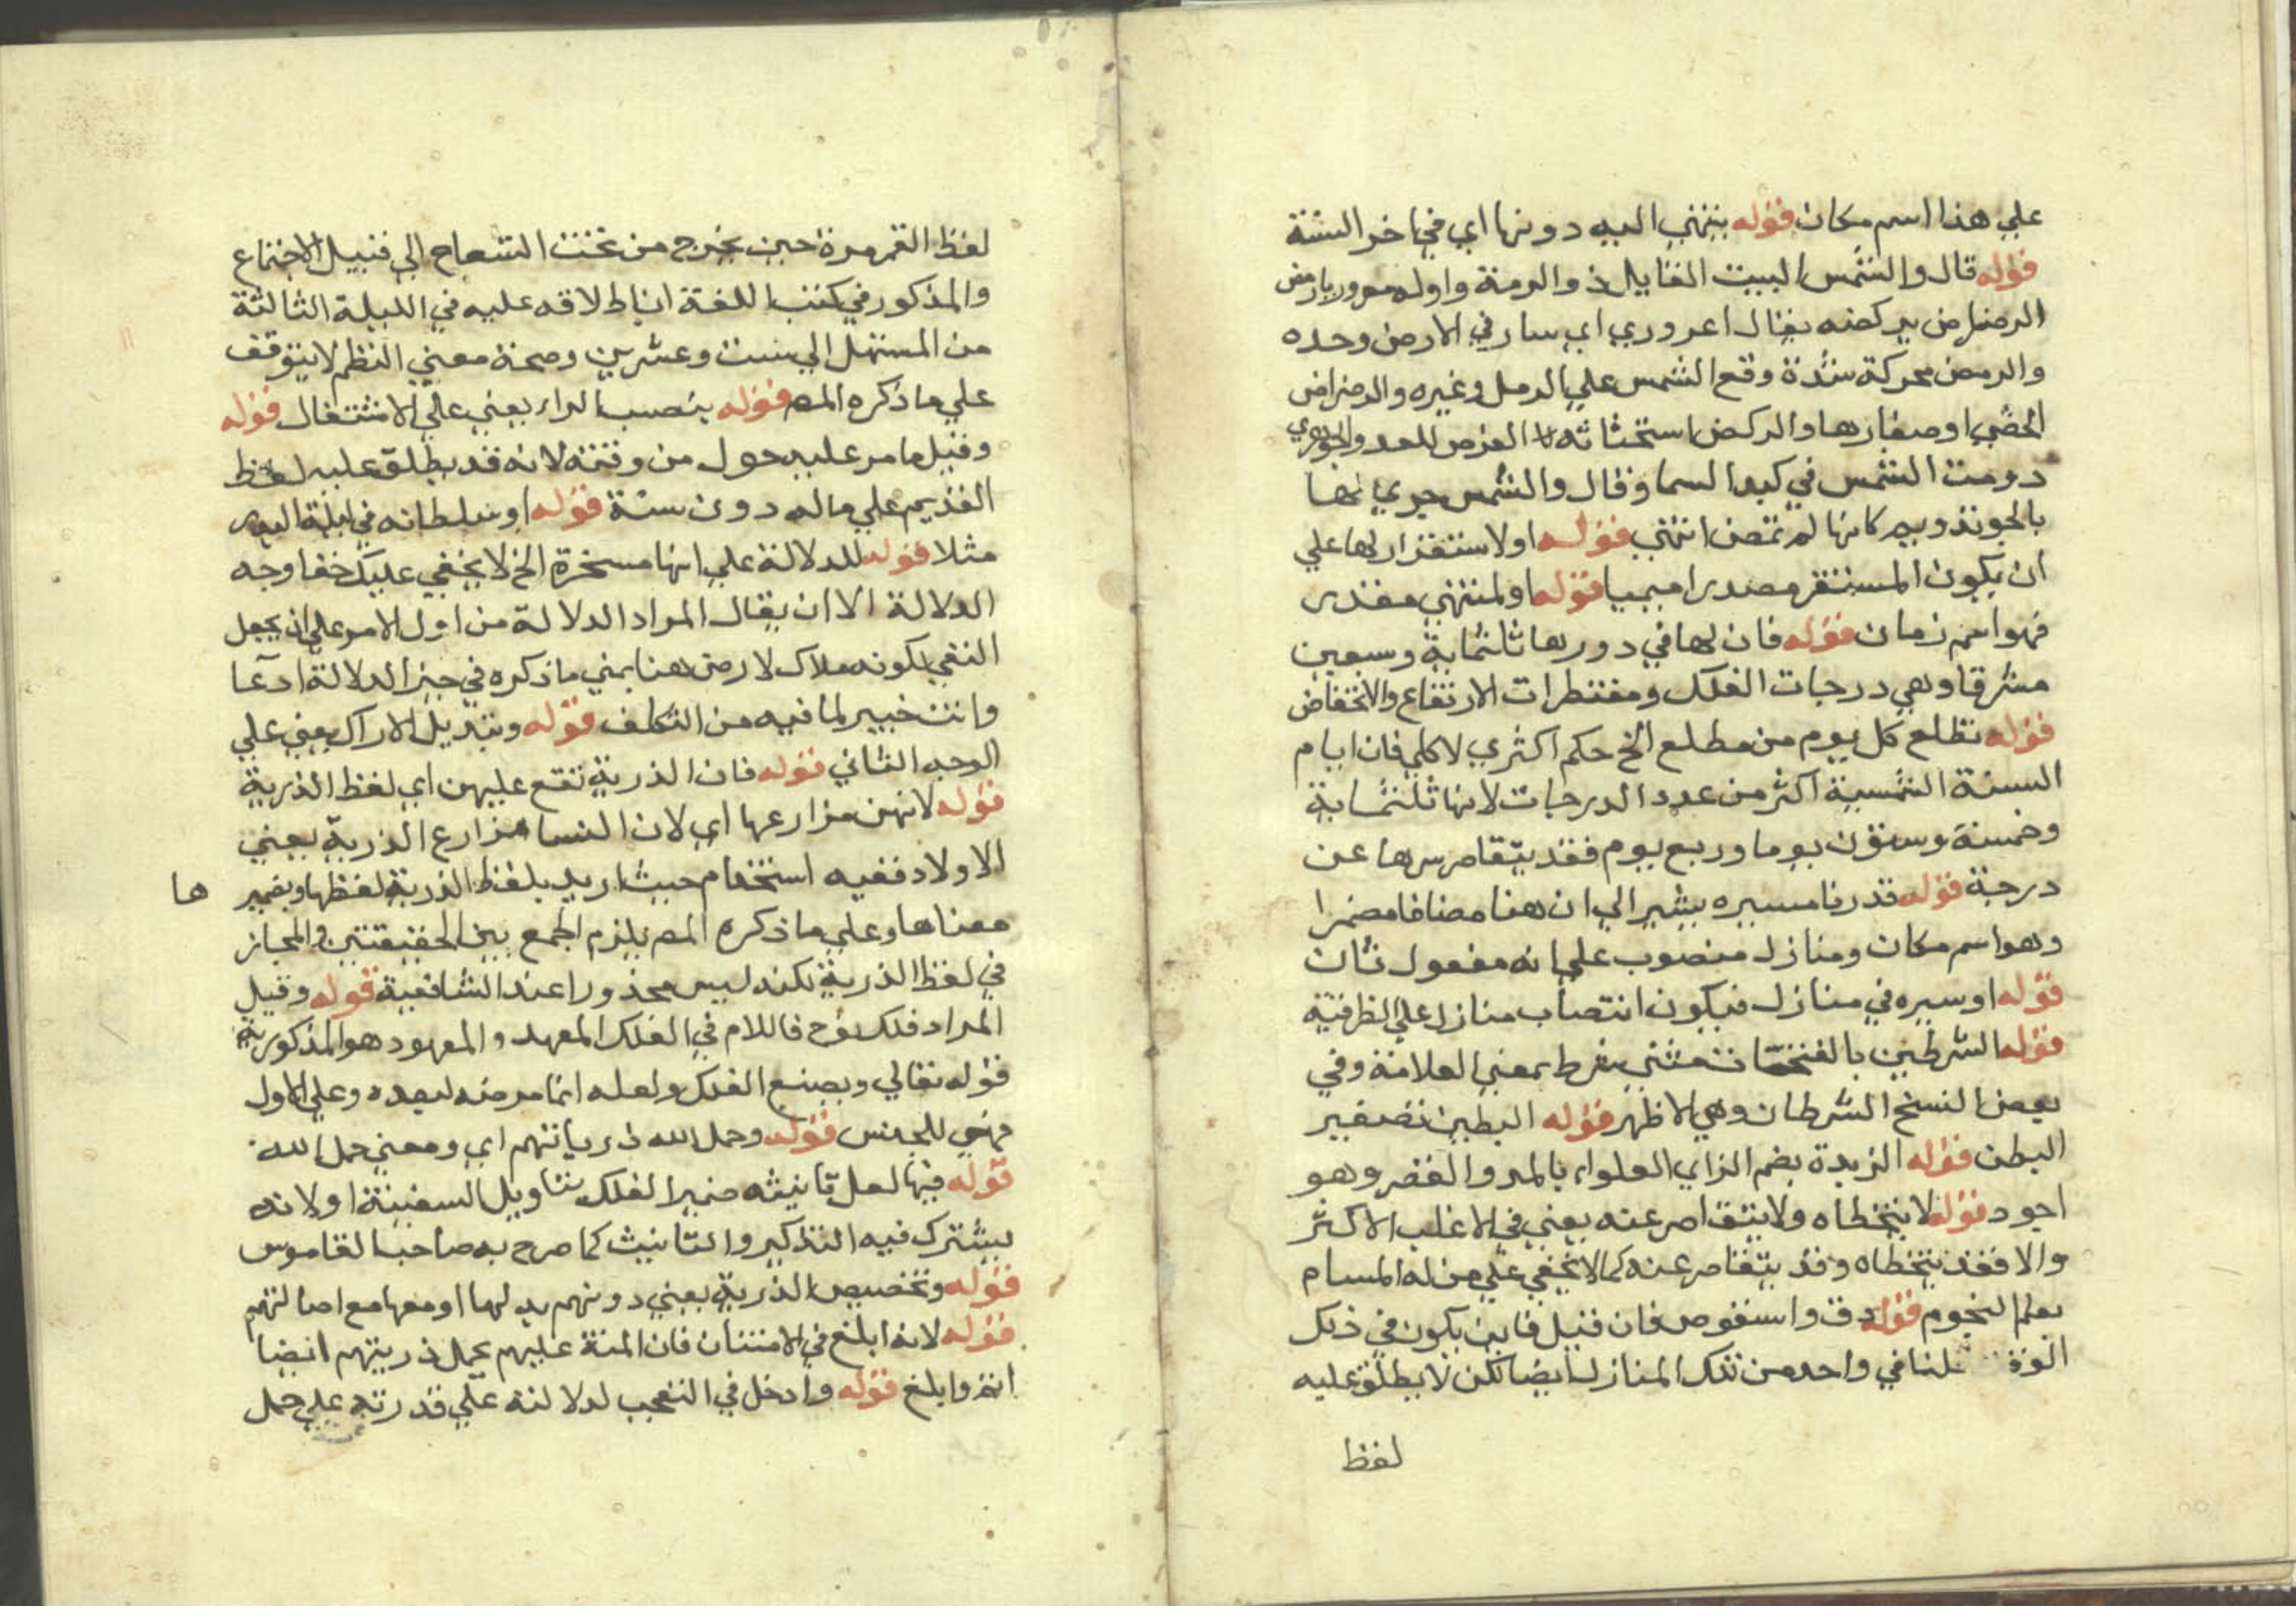 علي هذا اسم مكان قوله ينتهي اليه دونها اي في اخر السنة
قوله قال والشمس البيت القايل ذو الرمة واوله معروريا رمض
الرضراض يركضه يقال اعروري اي سار في الارض وحده
والرمض محركة شدة وقع الشمس علي الرمل وغيره والرضراض
الحصي او صغارها والركض استحثاثه الفرس للعدو والجوهري
دومت الشمس في كبد السما وقال والشمس حيري لها
بالجو تدويم كانها لم تمض انتهي قوله او لاستقرار لها علي
ان يكون المستقر مصدرا ميميا قوله او لمنتهي مقدر
فهو اسم زمان قوله فان لها في دورها ثلثماية وسبعين
مشرقا وهي درجات الفلك ومقنطرات الارتفاع والانخفاض
قوله تطلع كل يوم من مطلع الخ حكم اكثري لا كلي فان ايام
السنة الشمسية اكثر من عدد الدرجات لانها ثلثماية
وخمسة وستون يوما وربع يوم فقد يتقاصر سرها عن
درجة قوله قدرنا مسيره يشير الي ان هنا مضافا مضمرا
وهو اسم مكان ومنازل منصوب علي انه مفعول ثان
قوله او سيره في منازل فيكون انتصاب منازل علي الظرفية
قوله الشرطين بالفتحتان مثني شرط بمعني العلامة وفي
بعض النسخ الشرطان وهي الاظهر قوله البطين تصغير
البطن قوله الزبدة بضم الزاي العلواء بالمد والقصر وهو
اجود قوله لا يتخطاه ولا يتقاصر عنه يعني في الاغلب الاكثر
والا فقد يتخطاه وقد يتقاصر عنه كما لا يخفي علي من له المسام
بعلم النجوم قوله دق واستقوس فان قيل فاين يكون في ذلك
الوق قلنا في واحد من تلك المنازل ايضا لكن لا يطلق عليه
لفظ
لفظ القمر مرة حين يخرج من تحت الشعاع الي قبيل الاجتماع
والمذكور في كتب اللغة ان اطلاقه عليه في الليلة الثالثة
من المستهل الي ست وعشرين وصحة معني النظم لا يتوقف
علي ما ذكره المص قوله بنصب الراء يعني علي الاشتغال قوله
وقيل ما مر عليه حول من وقته لانه قد يطلق عليه لفظ
القديم علي ماله دون سنة قوله او سلطانه في ليلة البدر
مثلا قوله للدلالة علي انها مسخرة الخ لا يخفي عليك خفا وجه
الدلالة الا ان يقال المراد الدلالة من اول الامر علي ان يجعل
النفي لكونه ملاك لا رض هنا يمني ما ذكره في حيز الدلالة ادعا
وانت خبير لما فيه من التكلف قوله وتبديل الادراك يعني علي
الوجه الثاني قوله فان الذرية تقع عليهن اي لفظ الذرية
قوله لانهن مزارعها اي لان النسا مزارع الذرية يعني
الاولاد ففيه استخدام حيث اريد بلفظ الذرية لفظها وبضمير ها
معناها وعلي ما ذكره المص يلزم الجمع بين الحقيقتين والمجاز
في لفظ الذرية لكنه ليس محذورا عند الشافعية قوله وقيل
المراد فلك نوح فاللام في الفلك المعهد والمعهود هو المذكور به
قوله تعالي ويصنع الفلك ولعله انما مرضه لبعده وعلي الاول
فهي للجنس قوله وحمل الله ذرياتهم اي ومعني حمل الله
قوله فيها لعل تانيثه ضمير الفلك بتاويل السفينة او لانه
يشترك فيه التذكير والتانيث كما صرح به صاحب القاموس
قوله وتخصيص الذرية يعني دونهم بدلها او معها مع اصالتهم
قوله لانه ابلغ في الامتنان فان المنة عليهم بحمل ذريتهم ايضا
اتم وابلغ قوله وادخل في التعجب لدلالته علي قدرته علي حمل